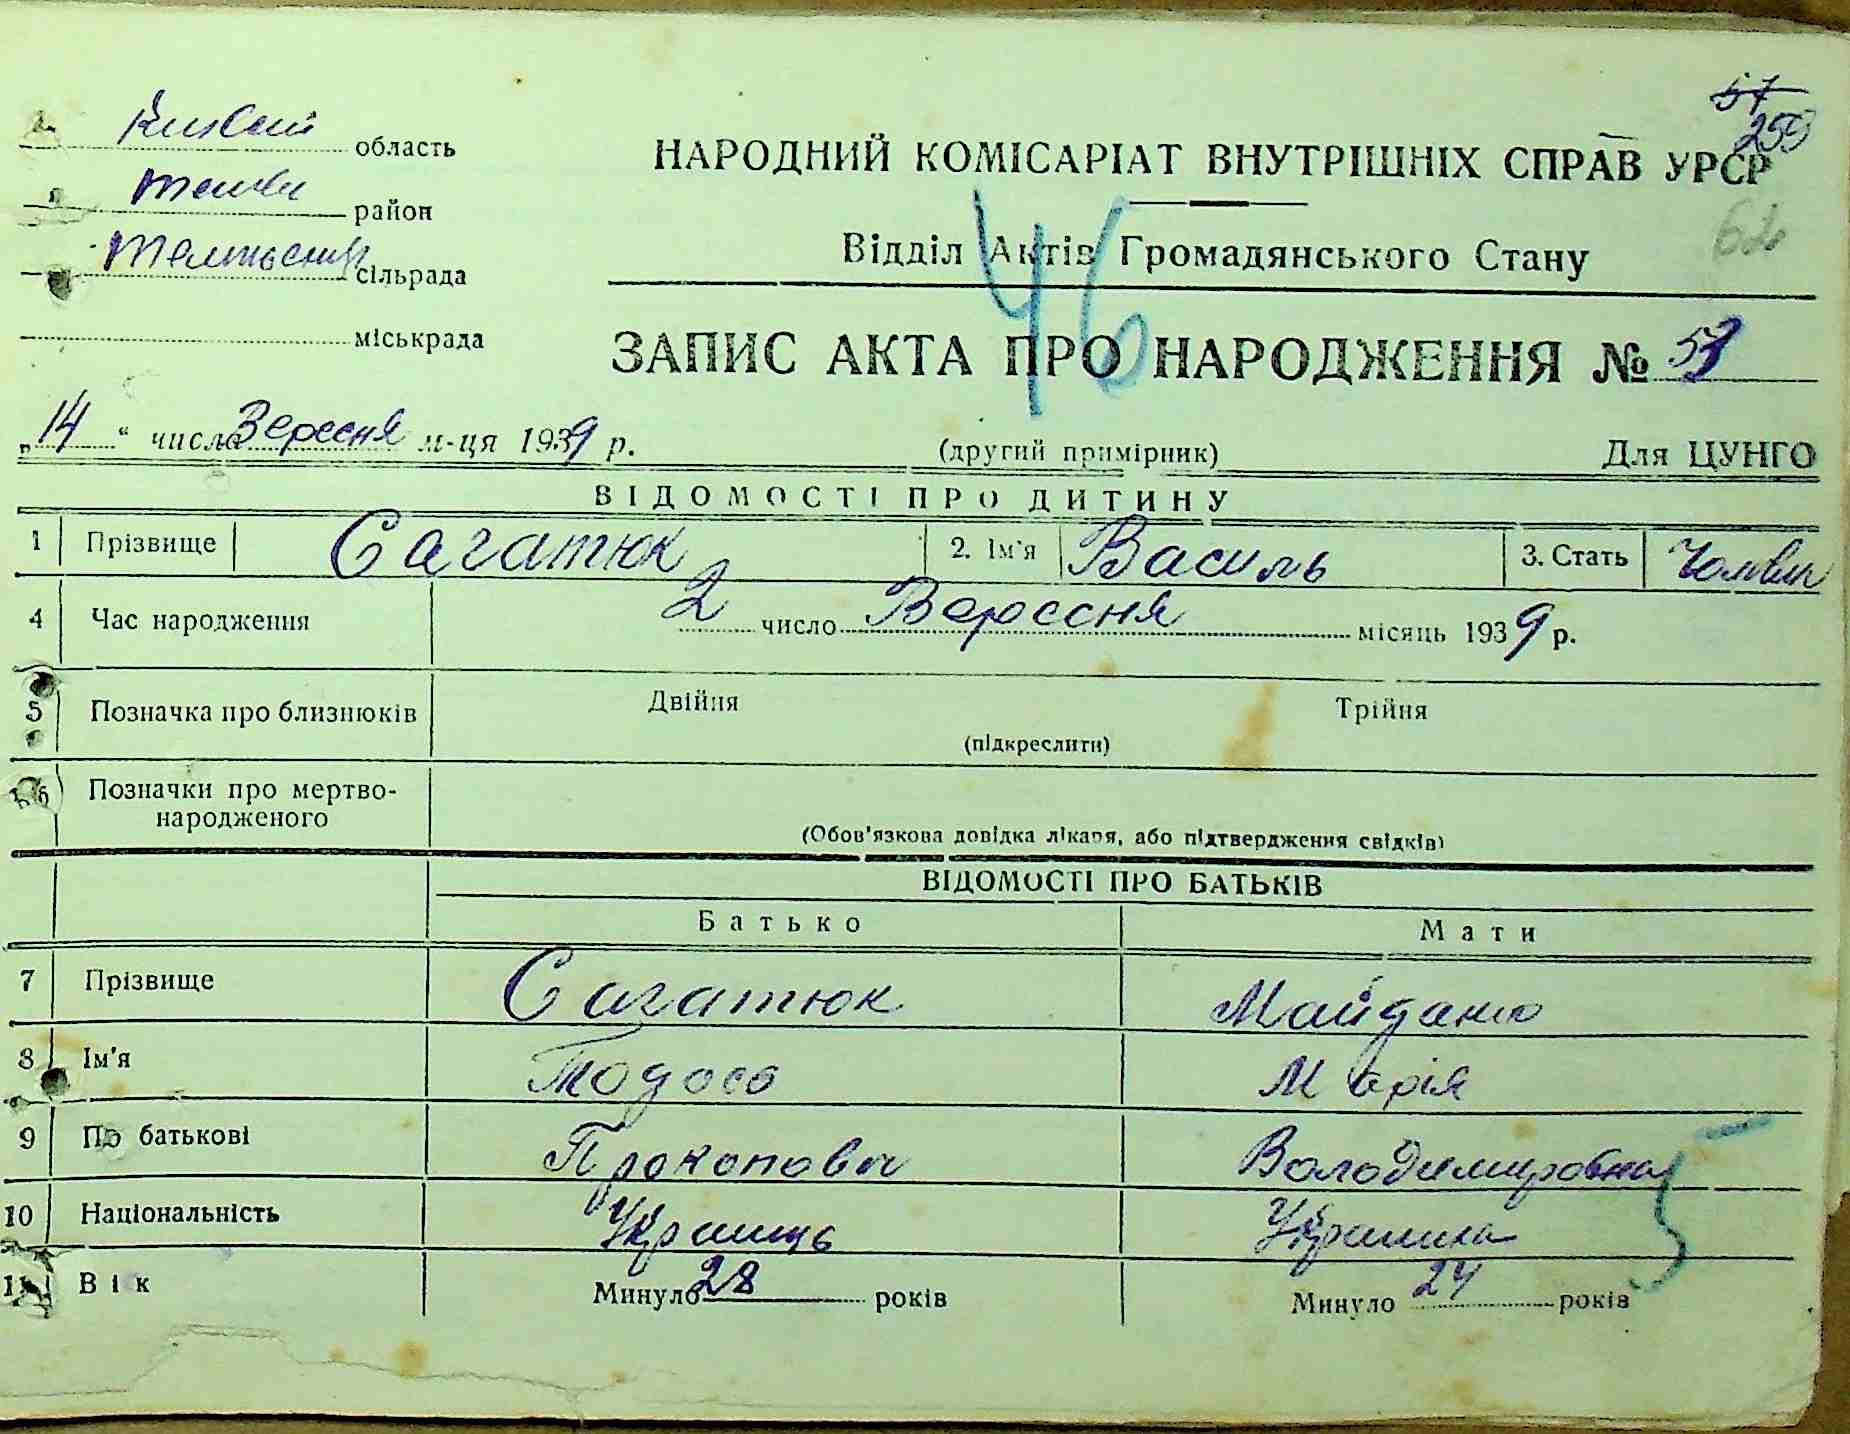 57
259
Київській область
НАРОДНИЙ КОМІСАРІАТ ВНУТРІШНІХ СПРАВ УРСР
район
62
сільрада
Відділ Актів Громадянського Стану
46
міськрада
ЗАПИС АКТА ПРО НАРОДЖЕННЯ №
„14“ числа Вересня м-ця 1939 р.
(другий примірник)
Для ЦУНГО
ВІДОМОСТІ ПРО ДИТИНУ
1 Прізвище Сагатюк 2. Ім'я Василь 3. Стать
4 Час народження 2 число Вересня місяць 1939 р.
5 Позначка про близнюків Двійня Трійня
(підкреслити)
6 Позначки про мертво-
народженого
(Обов'язкова довідка лікаря, або підтвердження свідків)
ВІДОМОСТІ ПРО БАТЬКІВ
Батько Мати
7 Прізвище Сагатюк
8 Ім'я Тодось Марія
9 По батькові Прокопович Володимировна
10 Національність Українць Українка
11 Вік Минуло 28 років Минуло 24 років
5